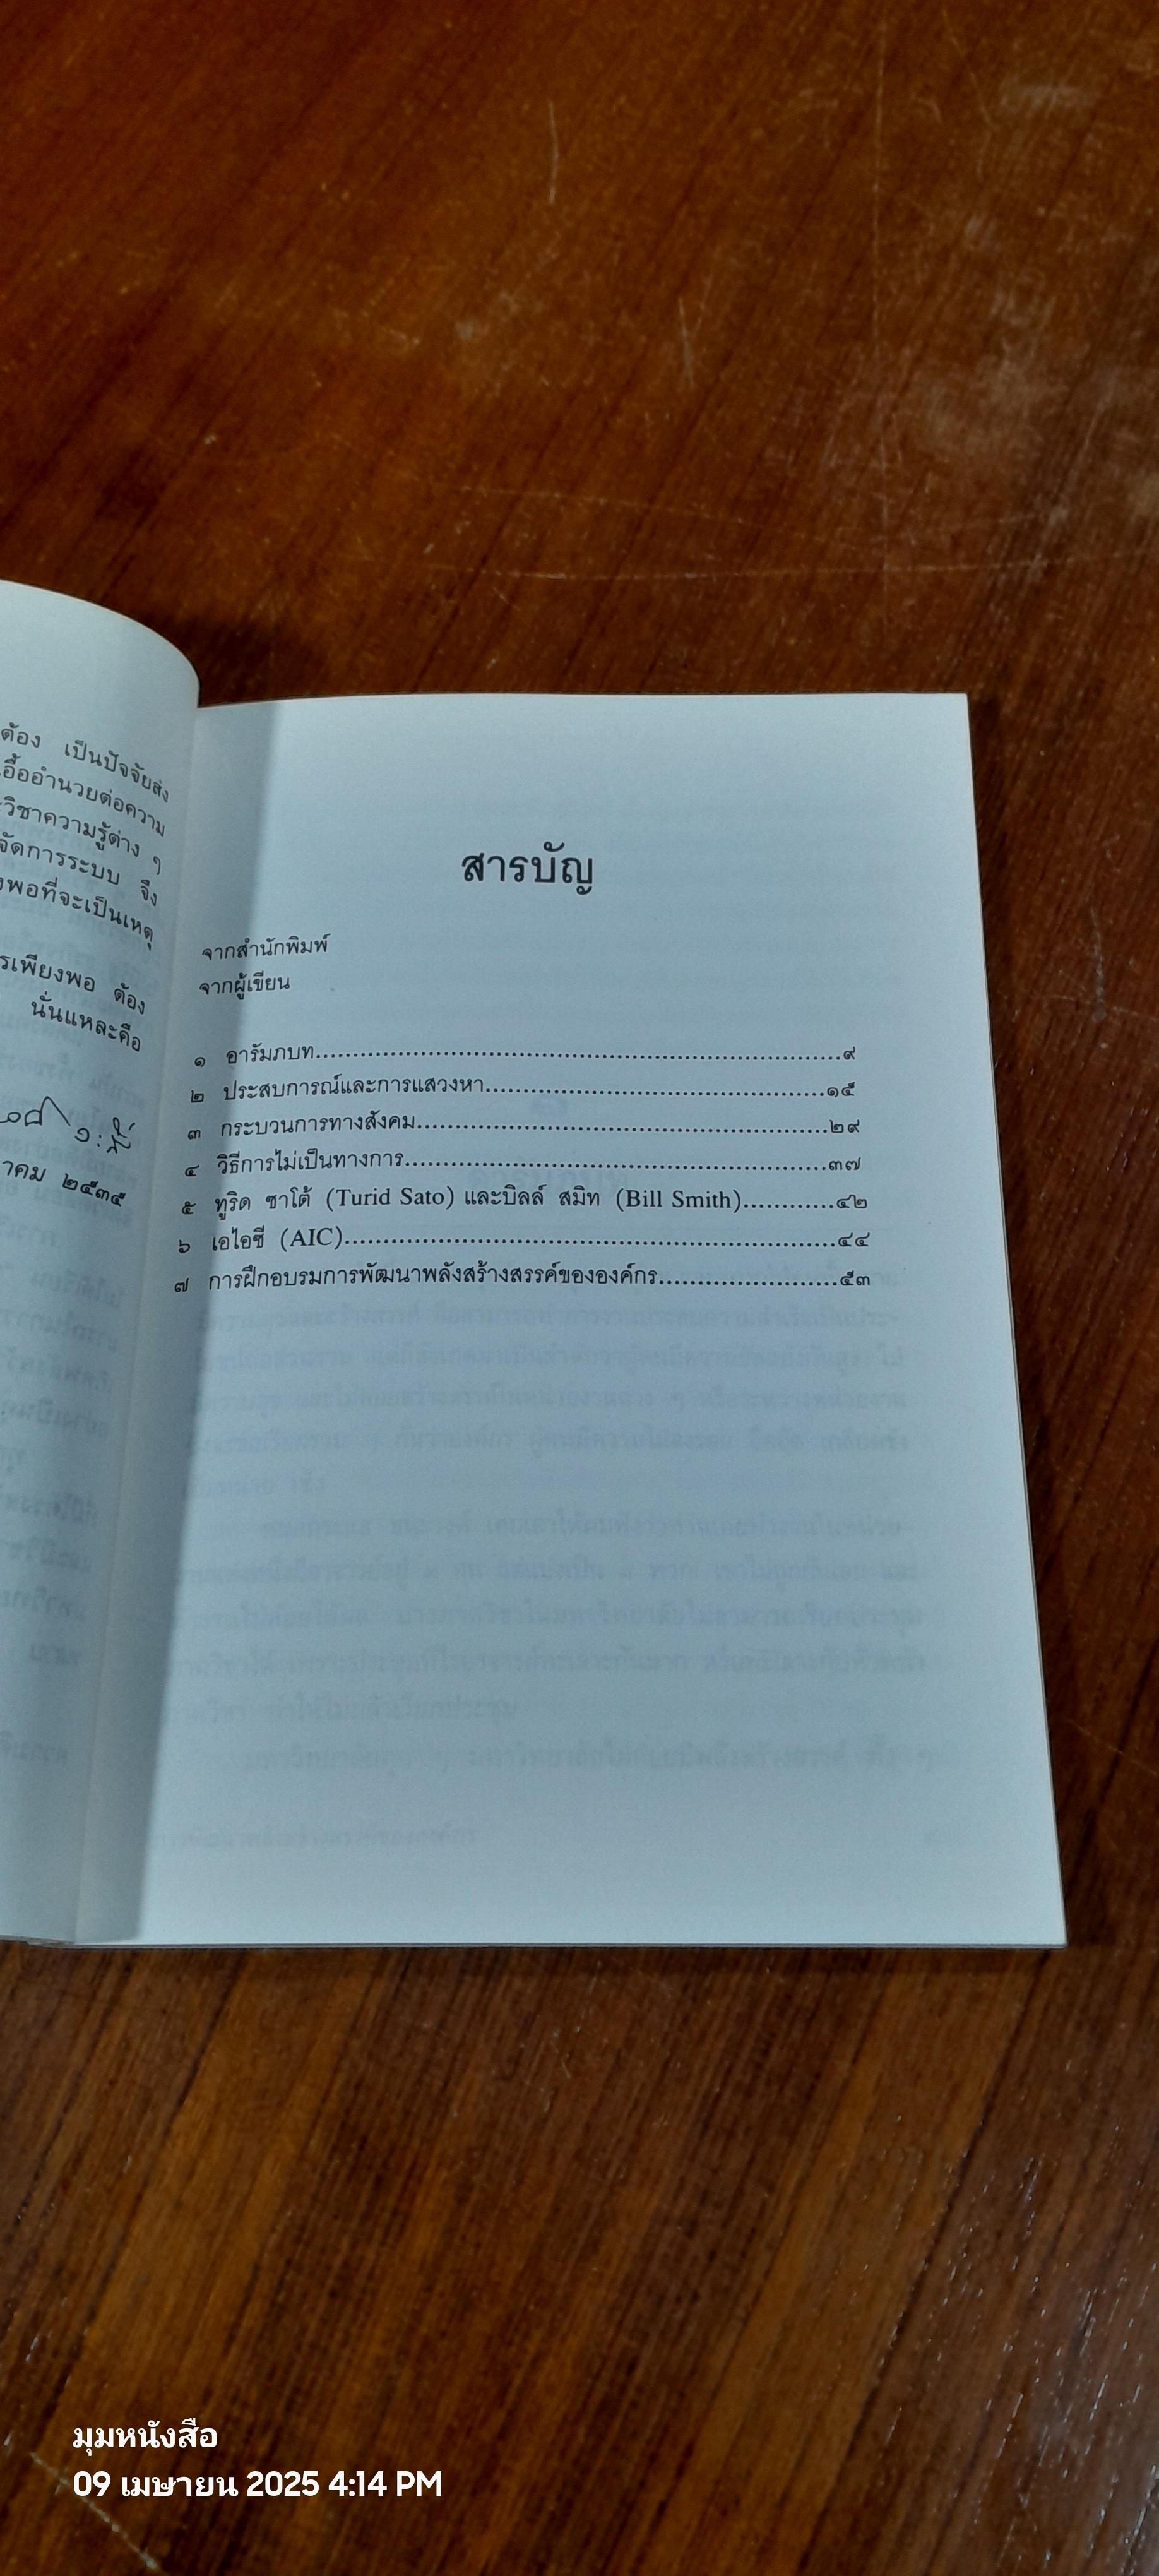 ต้อง เป็นปัจจัยส่ง
เอื้ออำนวยต่อความ
วิชาความรู้ต่าง ๆ
จัดการระบบ จึง
พอที่จะเป็นเหตุ
รเพียงพอ ต้อง
นั่นแหละคือ
าคม ๒๕๓๕
สารบัญ
จากสำนักพิมพ์
จากผู้เขียน
๑ อารัมภบท......................................................................๙
๒ ประสบการณ์และการแสวงหา.............................................๑๕
๓ กระบวนการทางสังคม.......................................................๒๙
๔ วิธีการไม่เป็นทางการ........................................................๓๗
๕ ทูริด ซาโต้ (Turid Sato) และบิลล์ สมิท (Bill Smith)............๔๒
๖ เอไอซี (AIC)..................................................................๔๔
๗ การฝึกอบรมการพัฒนาพลังสร้างสรรค์ขององค์กร........................๕๓
มุมหนังสือ
09 เมษายน 2025 4:14 PM